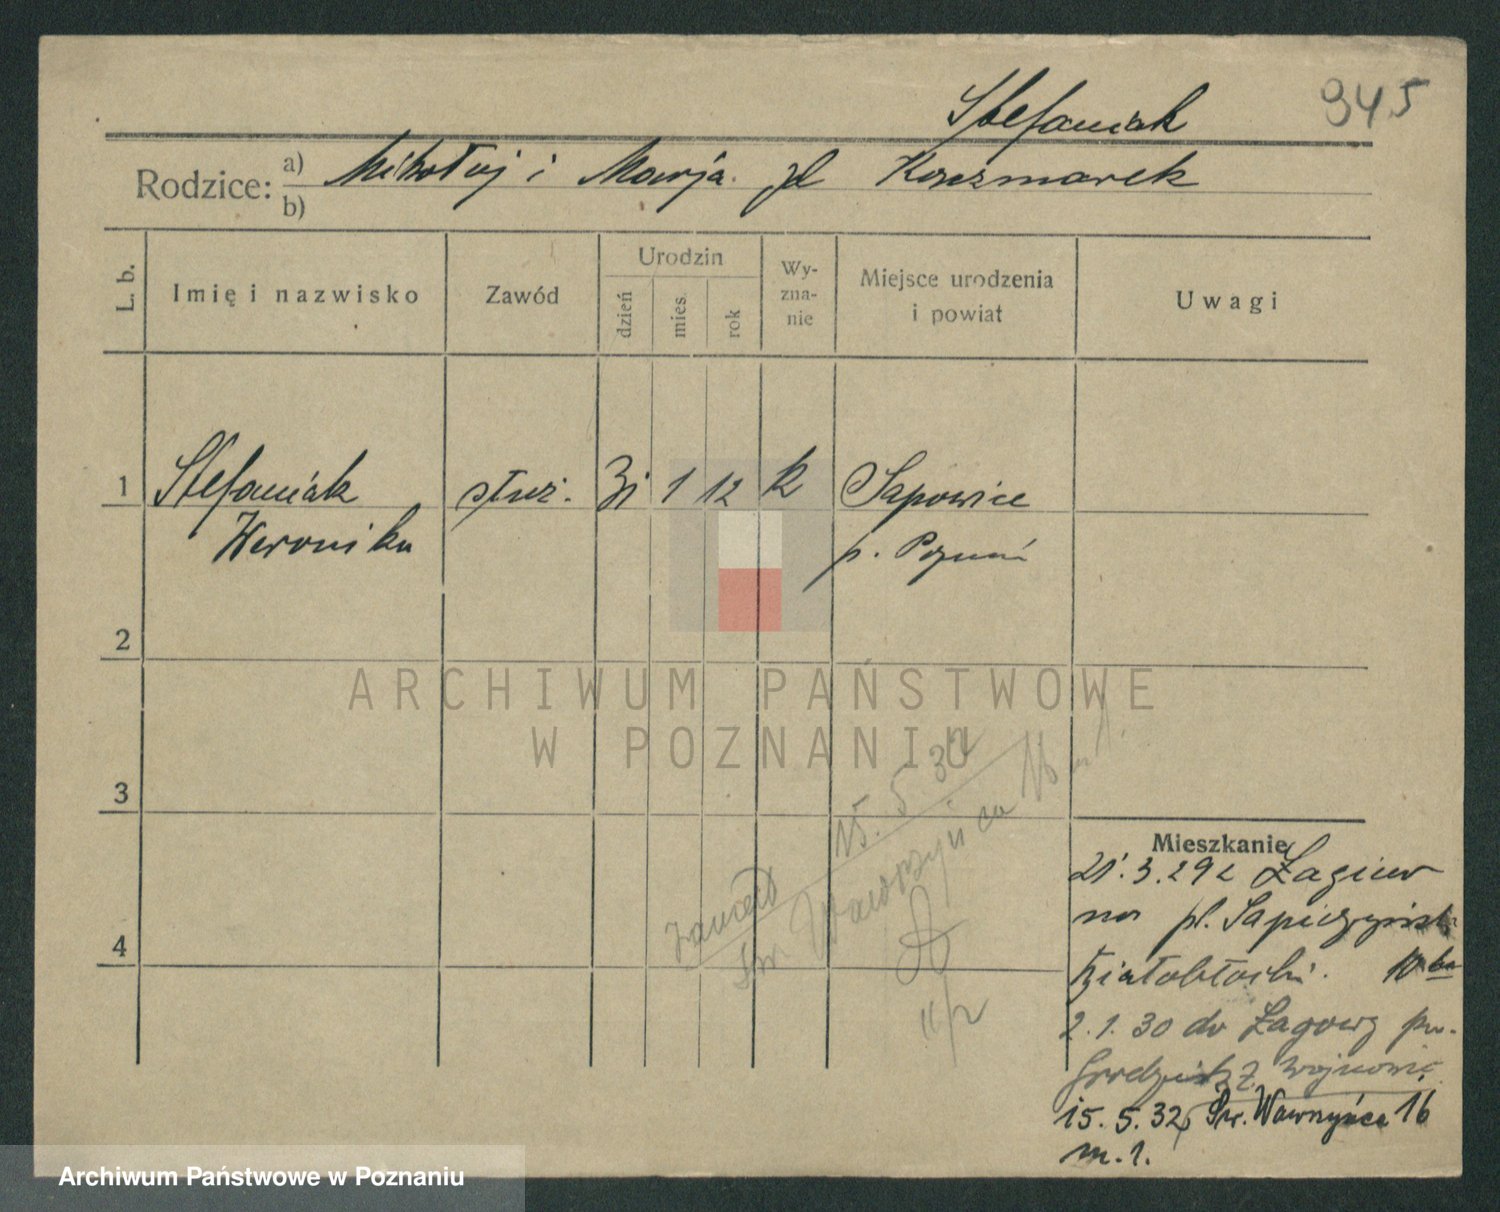 Stefaniak
945
Rodzice: a) Mikołaj i Marja zd Kaczmarek
b)
L. b.
Imię i nazwisko
Zawód
Urodzin
dzień
mies.
rok
Wy-
zna-
nie
Miejsce urodzenia
i powiat
Uwagi
1 Stefaniak służ. 31 1 12 k Sapowice
Weronika p. Poznań
2
ARCHIWUM PAŃSTWOWE
W POZNANIU
3
15.5.32
Św Wawrzyńca 16 m 1.
4
11/2
Mieszkanie
21.3.29 z Łagiew
na pl. Sapieżyński
Białobłocki. 10 ba
2.1.30 do
Grodzisk z Wojnowic
15.5.32 Św. Wawrzyńca 16
m. 1.
Archiwum Państwowe w Poznaniu